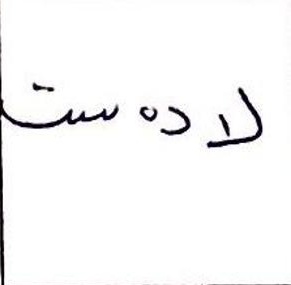 لادەست